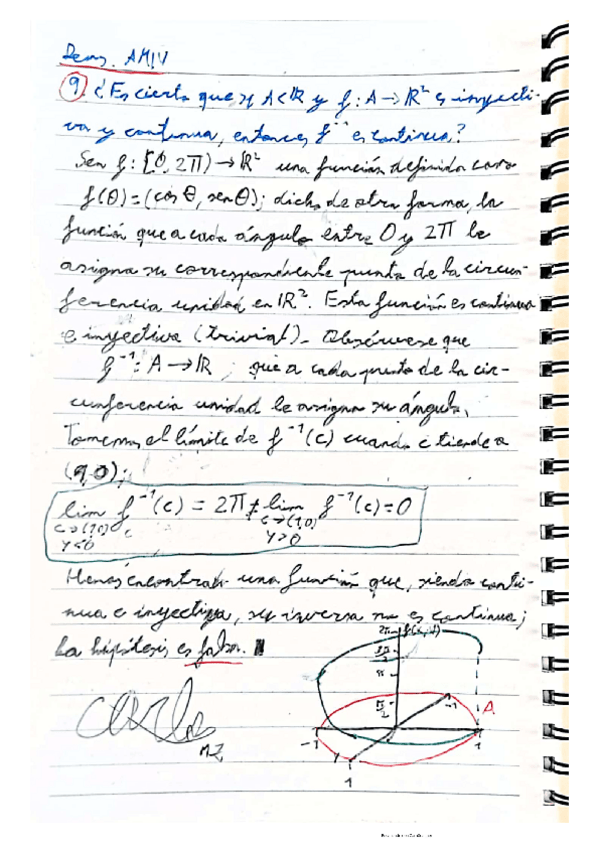 Dem. AMIV
9. ¿Es cierto que si A⊂ℝ y f: A→ℝ² es inyecti-
va y continua, entonces f⁻¹ es continua?
Sea f: [0, 2π) → ℝ² una función definida como
f(θ) = (cos θ, sen θ); dicho de otra forma, la
función que a cada ángulo entre 0 y 2π le
asigna su correspondiente punto de la circun-
ferencia unidad en ℝ². Esta función es continua
e inyectiva (trivial). Obsérvese que
f⁻¹: A → ℝ; que a cada punto de la cir-
cunferencia unidad le asigna su ángulo.
Tomemos el límite de f⁻¹(c) cuando c tiende a
lim f⁻¹(c) = 2π ≠ lim f⁻¹(c) = 0
c→(1,0) c→(1,0)
y<0 y>0
Hemos encontrado una función que, siendo conti-
nua e inyectiva, su inversa no es continua;
La hipótesis es falsa.
2π f(x,y)
3π/2
π
π/2
-1 A
-1 1
1
M.Z